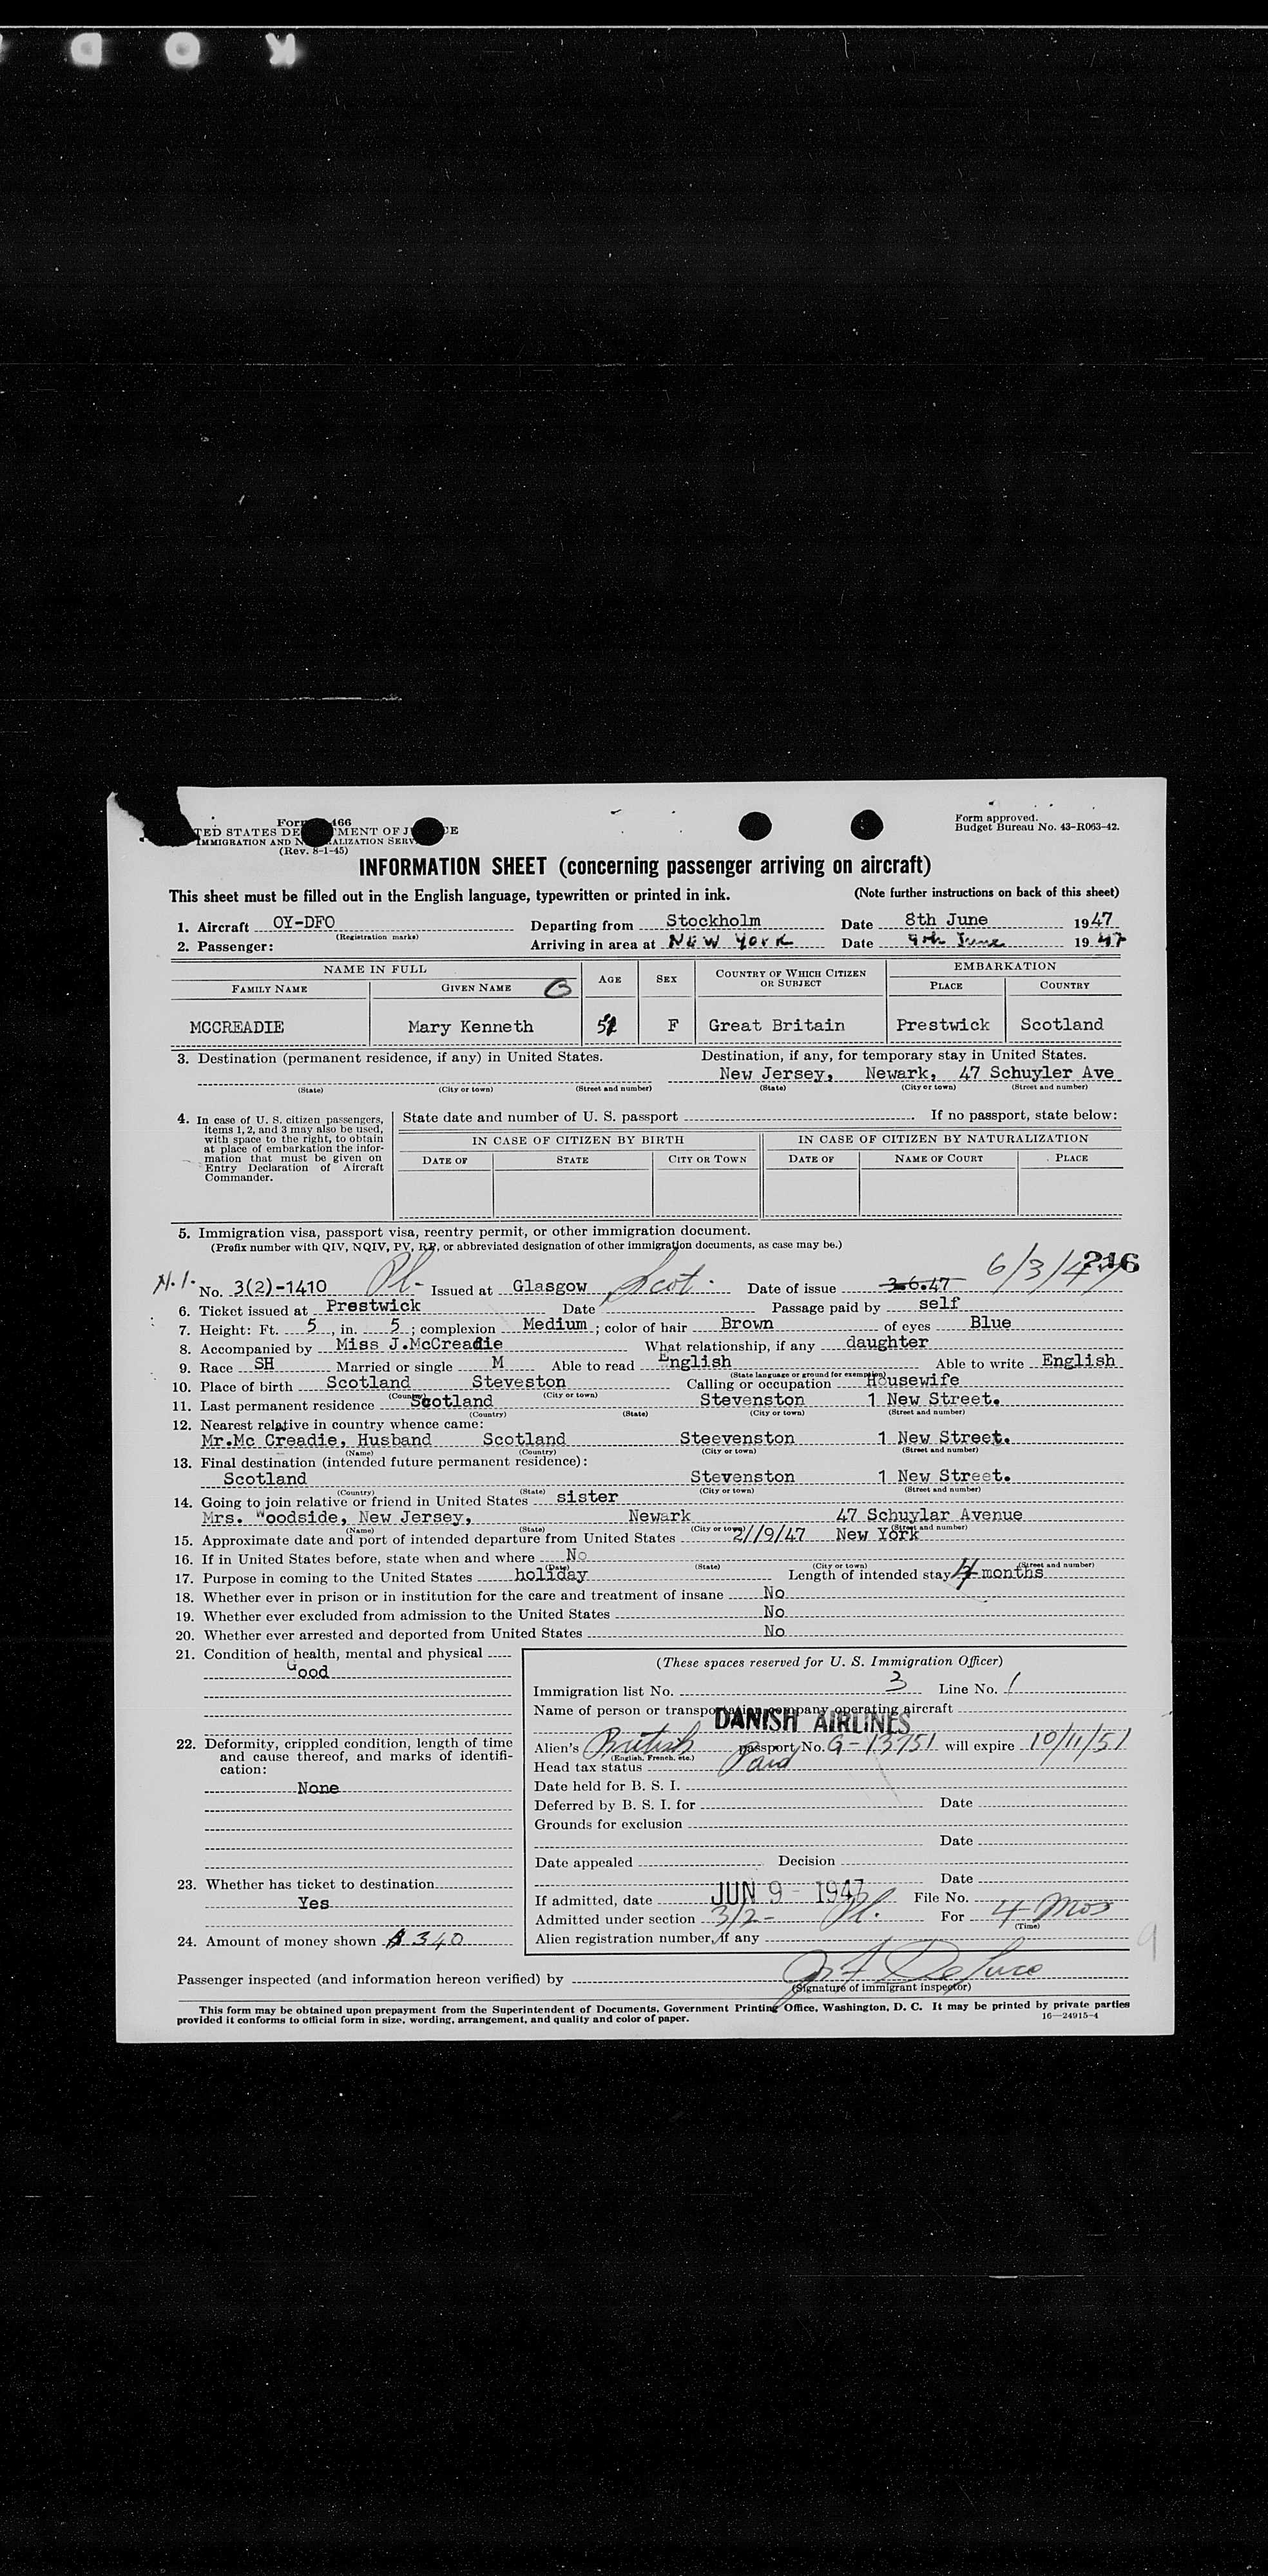 K O D
Form 466
TED STATES DE TMENT OF J CE
IMMIGRATION AND N ALIZATION SERV
(Rev. 8-1-45)
Form approved.
Budget Bureau No. 43-R063-42.
INFORMATION SHEET (concerning passenger arriving on aircraft)
This sheet must be filled out in the English language, typewritten or printed in ink. (Note further instructions on back of this sheet)
1. Aircraft OY-DFO Departing from Stockholm Date 8th June 1947
(Registration marks)
2. Passenger: Arriving in area at NEW YORK Date 9th June 1947
NAME IN FULL AGE SEX COUNTRY OF WHICH CITIZEN OR SUBJECT EMBARKATION
FAMILY NAME GIVEN NAME PLACE COUNTRY
MCCREADIE Mary Kenneth F Great Britain Prestwick Scotland
3. Destination (permanent residence, if any) in United States. Destination, if any, for temporary stay in United States.
New Jersey, Newark, 47 Schuyler Ave
(State) (City or town) (Street and number) (State) (City or town) (Street and number)
4. In case of U. S. citizen passengers, items 1, 2, and 3 may also be used, with space to the right, to obtain at place of embarkation the information that must be given on Entry Declaration of Aircraft Commander.
State date and number of U. S. passport If no passport, state below:
IN CASE OF CITIZEN BY BIRTH IN CASE OF CITIZEN BY NATURALIZATION
DATE OF STATE CITY OR TOWN DATE OF NAME OF COURT PLACE
5. Immigration visa, passport visa, reentry permit, or other immigration document.
(Prefix number with QIV, NQIV, PV, RP, or abbreviated designation of other immigration documents, as case may be.)
216
No. 3(2)-1410 Pl. Issued at Glasgow Scot. Date of issue 3.6.47 6/3/47
6. Ticket issued at Prestwick Date Passage paid by self
7. Height: Ft. 5, in. 5; complexion Medium; color of hair Brown of eyes Blue
8. Accompanied by Miss J.McCreadie What relationship, if any daughter
9. Race SH Married or single M Able to read English Able to write English
(State language or ground for exemption)
10. Place of birth Scotland Steveston Calling or occupation Housewife
(Country) (City or town)
11. Last permanent residence Scotland Stevenston 1 New Street.
(Country) (State) (City or town) (Street and number)
12. Nearest relative in country whence came:
Mr.Mc Creadie, Husband Scotland Steevenston 1 New Street.
(Name) (Country) (City or town) (Street and number)
13. Final destination (intended future permanent residence):
Scotland Stevenston 1 New Street.
(Country) (State) (City or town) (Street and number)
14. Going to join relative or friend in United States sister
Mrs. Woodside, New Jersey, Newark 47 Schuylar Avenue
(Name) (State) (City or town) (Street and number)
15. Approximate date and port of intended departure from United States 2//9/47 New York
16. If in United States before, state when and where No
(Date) (State) (City or town) (Street and number)
17. Purpose in coming to the United States holiday Length of intended stay 4 months
18. Whether ever in prison or in institution for the care and treatment of insane No
19. Whether ever excluded from admission to the United States No
20. Whether ever arrested and deported from United States No
21. Condition of health, mental and physical
Good
22. Deformity, crippled condition, length of time and cause thereof, and marks of identification:
None
23. Whether has ticket to destination
Yes
24. Amount of money shown $ 340
(These spaces reserved for U. S. Immigration Officer)
Immigration list No. 3 Line No. 1
Name of person or transportation company operating aircraft
DANISH AIRLINES
Alien's British passport No. G-13751 will expire 10/11/51
(English, French, etc.)
Head tax status Paid
Date held for B. S. I.
Deferred by B. S. I. for Date
Grounds for exclusion
Date
Date appealed Decision
Date
If admitted, date JUN 9 - 1947 File No.
Admitted under section 3/2- Pl. For 4 Mos
(Time)
Alien registration number, if any
9
Passenger inspected (and information hereon verified) by
(Signature of immigrant inspector)
This form may be obtained upon prepayment from the Superintendent of Documents, Government Printing Office, Washington, D. C. It may be printed by private parties
provided it conforms to official form in size, wording, arrangement, and quality and color of paper. 16—24915-4